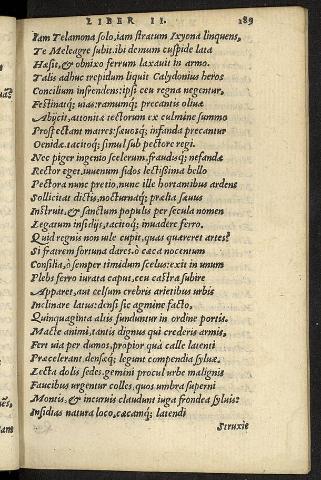 LIBER II. 189
Iam Telamona solo, iam stratum Ixyona linquens,
Te Meleagre subit. ibi demum cuspide lata
Hæsit, & obnixo ferrum laxauit in armo.
Talis adhuc trepidum liquit Calydonius heros
Concilium infrendens: ipsi ceu regna negentur.
Festinatq; uias: ramumq; precantis oliuæ
Abijcit. attonitæ tectorum ex culmine summo
Prospectant matres: sæuosq; infanda precantur
Oenidæ. tacitoq; simul sub pectore regi.
Nec piger ingenio scelerum, fraudisq; nefandæ
Rector eget. iuuenum fidos lectissima bello
Pectora nunc pretio, nunc ille hortantibus ardens
Sollicitat dictis, nocturnaq; prælia sæuus
Instruit. & sanctum populis per secula nomen
Legatum insidijs, tacitoq; inuadere ferro.
Quid regnis non uile cupit. quas quæreret artes?
Si fratrem fortuna dares. ò cæca nocentum
Consilia, ò semper timidum scelus: exit in unum
Plebs ferro iurata caput, ceu castra subire
Apparet, aut celsum crebris arietibus urbis
Inclinare latus: densi sic agmine facto,
Quinquaginta altis funduntur in ordine portis.
Macte animi, tantis dignus qui crederis armis,
Fert uia per dumos, propior quà calle latenti
Præcelerant, densæq; legunt compendia syluæ.
Lecta dolis sedes. gemini procul urbe malignis
Faucibus urgentur colles, quos umbra superni
Montis, & incuruis claudunt iuga frondea syluis:
Insidias natura loco, cæcamq; latendi
Struxie